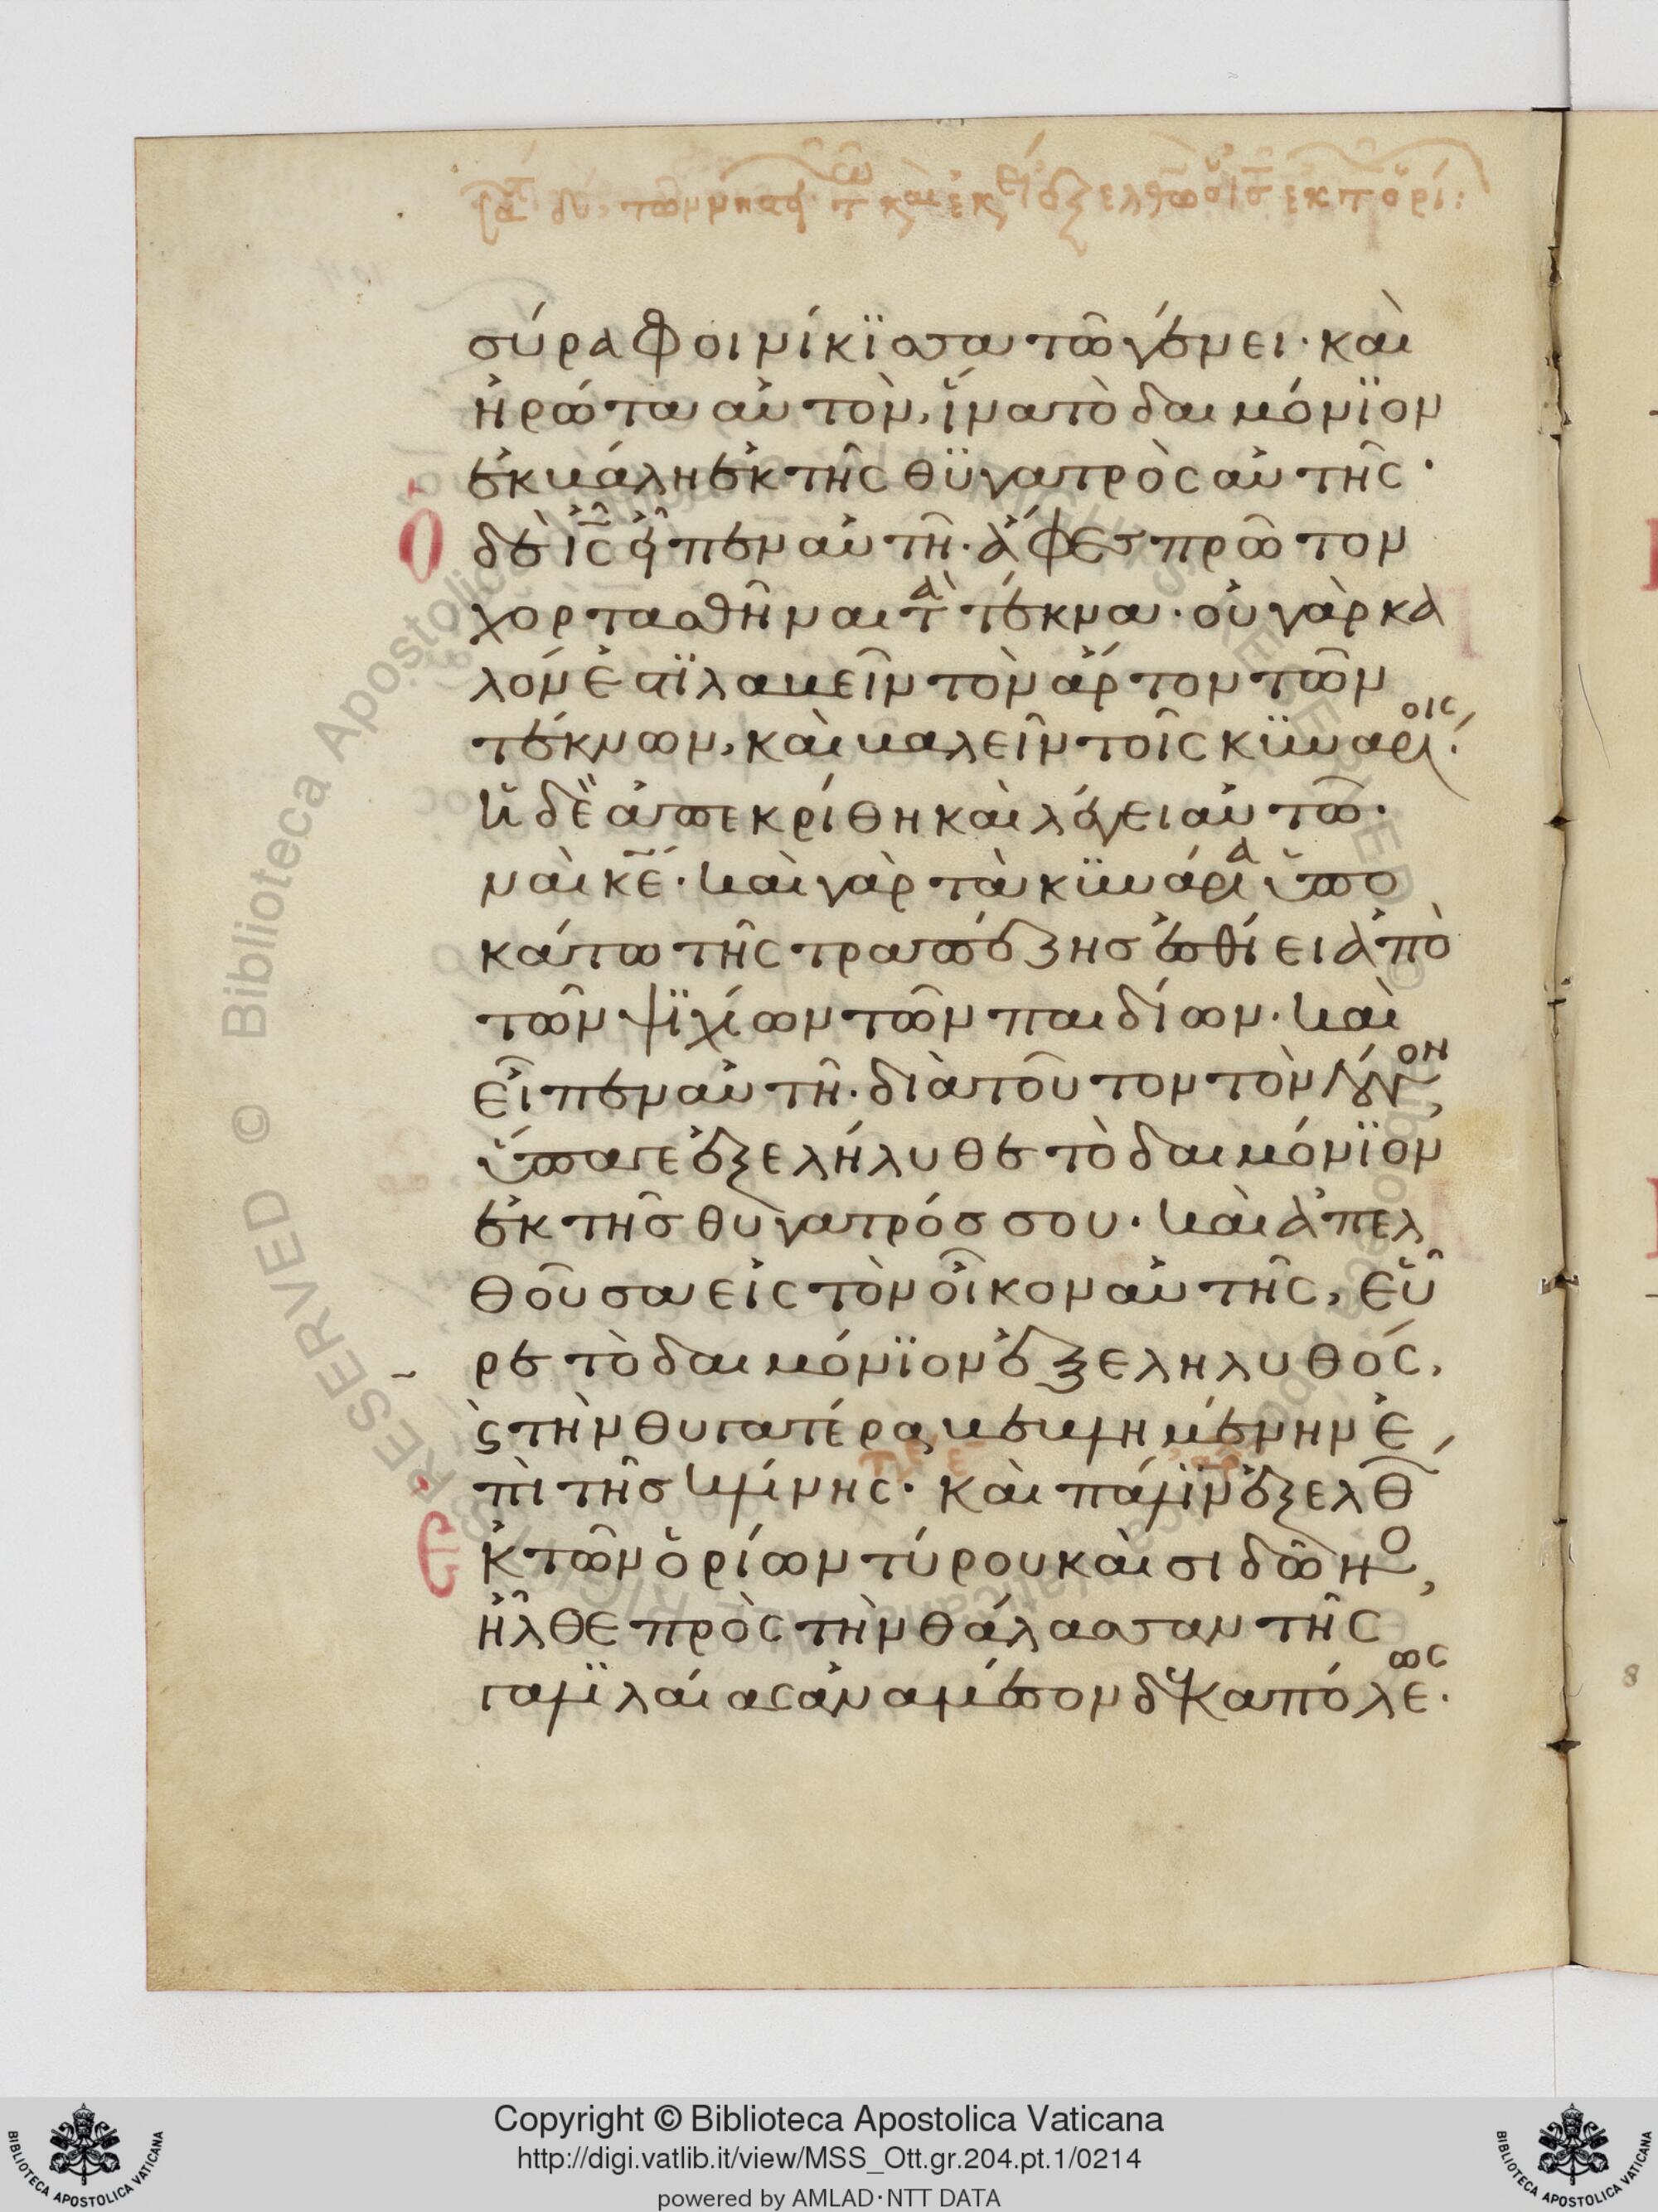 σύρα φοινίκϊσσα τῶ γένει· καὶ
ἠρώτα αὐτὸν, ἵνα τὸ δαιμόνϊον
ἐκβάλη ἐκ τῆς θϋγατρὸς αὐτῆς·
Ὁ δὲ ἰς εἶπεν αὐτῆ· ἄφες πρῶτον
χορτασθῆναι τὰ τέκνα· οὐ γὰρ κα
λόν ἐστϊ λαβεῖν τὸν ἄρτον τῶν
τέκνων, καὶ βαλεῖν τοῖς κϋναρίοις·
ἡ δὲ ἀπεκρίθη καὶ λέγει αὐτῶ·
ναὶ κε· καὶ γὰρ τὰ κϋνάρια ὑπο
κάτω τῆς τραπέζης ἐσθίει ἀπὸ
τῶν ψϊχίων τῶν παιδίων· καὶ
εἶπεν αὐτῆ· διὰ τοῦτον τὸν λόγον
ὕπαγε ἐξελήλυθε τὸ δαιμόνϊον
ἐκ τῆς θυγατρός σου· καὶ ἀπελ
θοῦσα εἰς τὸν οἶκον αὐτῆς, εὗ
ρε τὸ δαιμόνϊον ἐξεληλυθός,
ϛ τὴν θυγατέρα βεβλημένην ἐ
πὶ τῆς κλίνης· καὶ πάλϊν ἐξελθ
Ἐκ τῶν ὁρίων τύρου καὶ σιδῶνο,
ἦλθε πρὸς τὴν θάλασσαν τῆς
γαλϊλαίας ἀναμέσον δεκαπόλεως·
Copyright © Biblioteca Apostolica Vaticana
http://digi.vatlib.it/view/MSS_Ott.gr.204.pt.1/0214
powered by AMLAD·NTT DATA